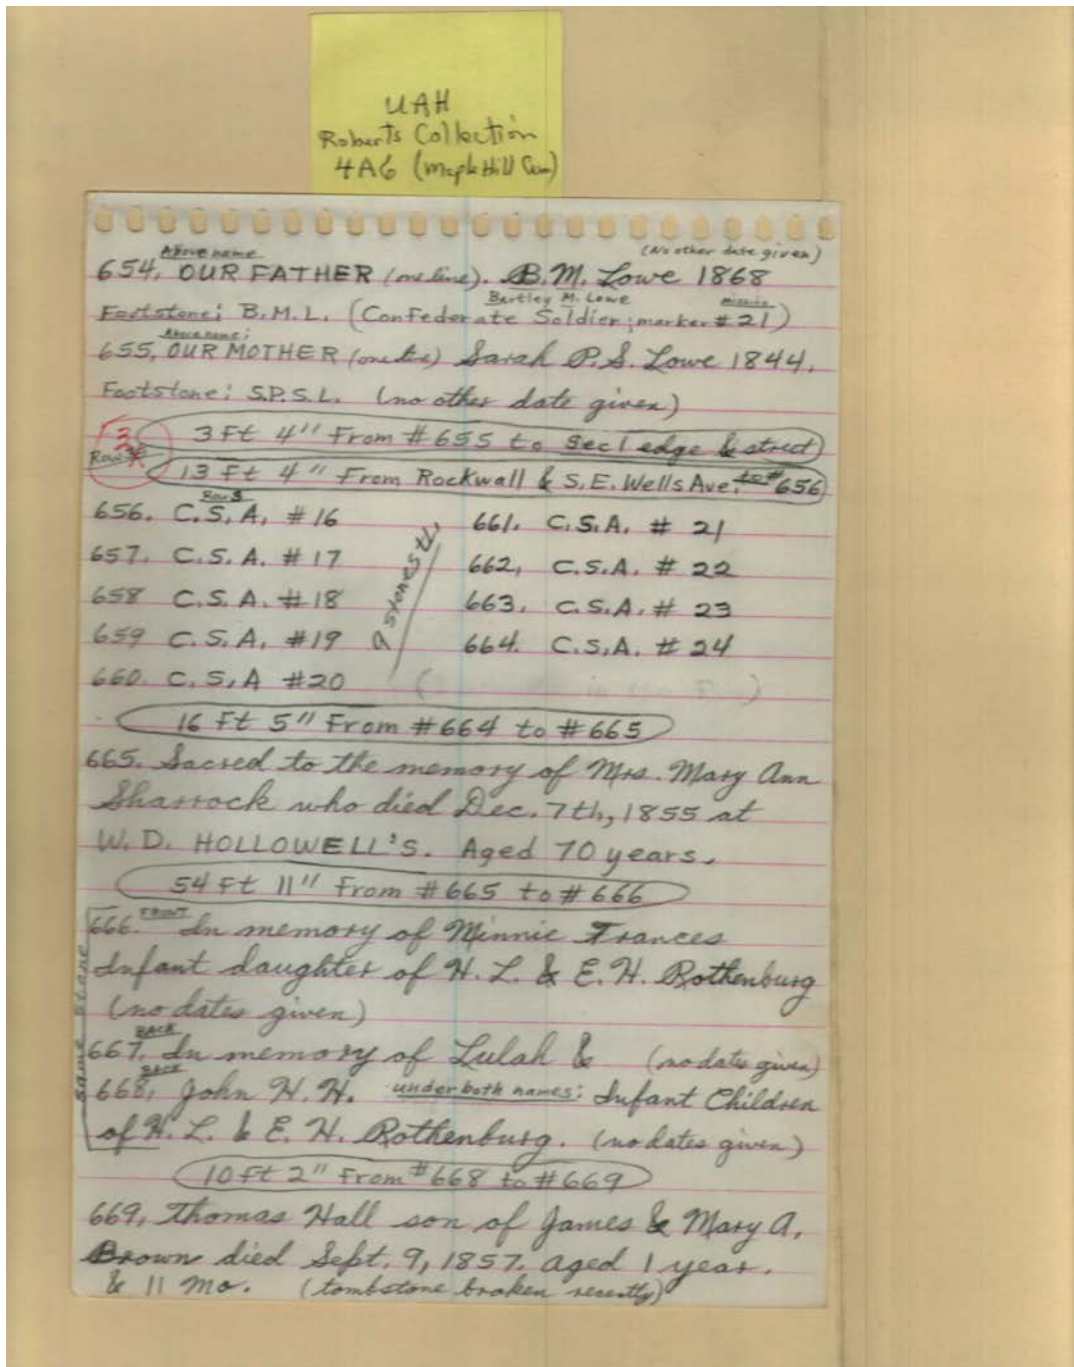 UAH
Roberts Collection
4A6 (Maple Hill Cem)
Above name (No other date given)
654. OUR FATHER (one line). B.M. Lowe 1868
Bartley M. Lowe
Footstone: B.M.L. (Confederate Soldier; marker #21)
Above name:
655. OUR MOTHER (one line) Sarah P.S. Lowe 1844.
Footstone: S.P.S.L. (no other date given)
3 Ft 4" From #655 to Sec 1 edge & street
3
Row
13 Ft 4" From Rockwall & S.E. Wells Ave. to #656
Row 3
656. C.S.A. #16 661. C.S.A. # 21
657. C.S.A. #17 662. C.S.A. # 22
658 C.S.A. #18 663. C.S.A. # 23
659 C.S.A. #19 664. C.S.A. # 24
660. C.S.A #20
9 stones
16 Ft 5" From #664 to #665
665. Sacred to the memory of Mrs. Mary Ann
Sharrock who died Dec. 7th, 1855 at
W.D. HOLLOWELL'S. Aged 70 years.
54 Ft 11" From #665 to #666
same stone
FRONT
666. In memory of Minnie Frances
Infant daughter of H. L. & E. H. Rothenburg
(no dates given)
BACK
667. In memory of Lulah & (no dates given)
BACK
668. John H. H. under both names: Infant Children
of H. L. & E. H. Rothenburg. (no dates given)
10 Ft 2" From #668 to #669
669. Thomas Hall son of James & Mary A.
Brown died Sept. 9, 1857. aged 1 year.
& 11 Mo. (tombstone broken recently)